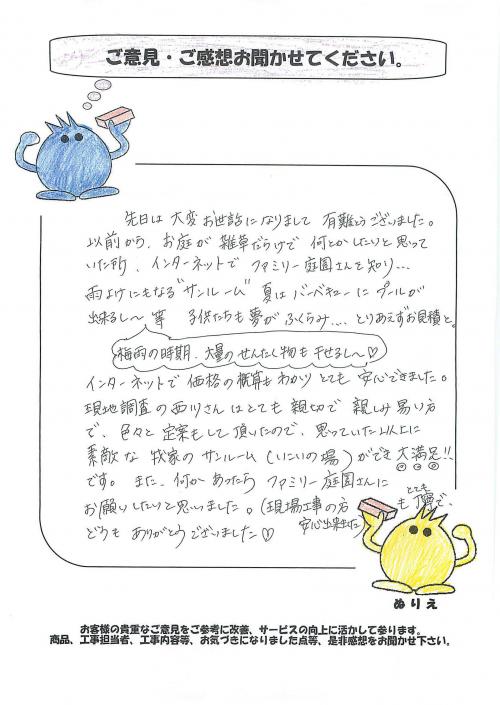 ご意見・ご感想お聞かせてください。
先日は大変お世話になりまして有難とうございました。
以前から、お庭が雑草だらけで何とかしたいと思って
いた所、インターネットでファミリー庭園さんを知り…
雨よけにもなる"サンルーム"夏はバーベキューにプールが
出来るし〜等 子供たちも夢がふくらみ…. とりあえずお見積と。
梅雨の時期、大量のせんたく物も干せるし〜♡
インターネットで価格の概算もわかりとても安心できました。
現地調査の西川さんはとても親切で親しみ易い方
で、色々と定案もして頂いたので、思っていた以上に
素敵な我家のサンルーム(いこいの場)ができ大満足!!
です。また、何かあったらファミリー庭園さんに
お願いしたいと思いました。(現場工事の方もとても丁寧で、
安心出来ました)
どうもありがとうございました♡
ぬりえ
お客様の貴重なご意見をご参考に改善、サービスの向上に活かして参ります。
商品、工事担当者、工事内容等、お気づきになりました点等、是非感想をお聞かせ下さい。